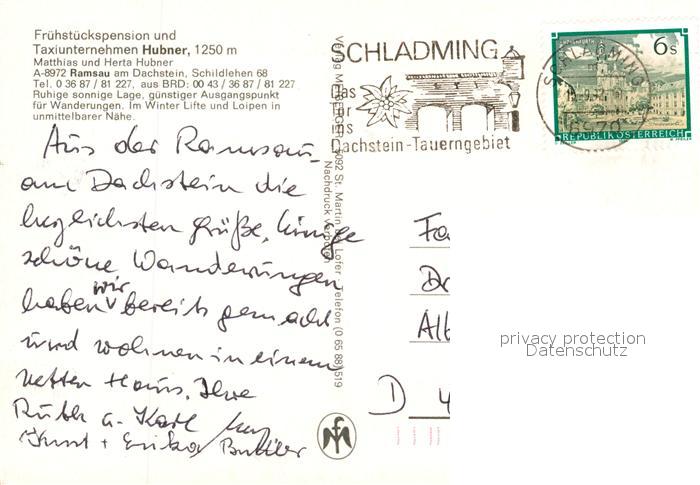 Frühstückspension und
Taxiunternehmen Hubner, 1250 m
Matthias und Herta Hubner
A-8972 Ramsau am Dachstein, Schildlehen 68
Tel. 0 36 87 / 81 227, aus BRD: 00 43 / 36 87 / 81 227
Ruhige sonnige Lage, günstiger Ausgangspunkt
für Wanderungen. Im Winter Lifte und Loipen in
unmittelbarer Nähe.
SCHLADMING
Das
Tor
ins
Dachstein-Tauerngebiet
SCHLADMING
6 s
REPUBLIK ÖSTERREICH
Aus der Ramsau
am Dachstein die
herzlichsten Grüße, einige
schöne Wanderungen
haben wir bereits gemacht
und wohnen in einem
netten Haus. Ihre
Ruth u. Karl
Horst + Erika
5092 St. Martin bei Lofer - Telefon (0 65 88) 519
Nachdruck verboten
Fa
Dr
Alb
D 4
privacy protection
Datenschutz